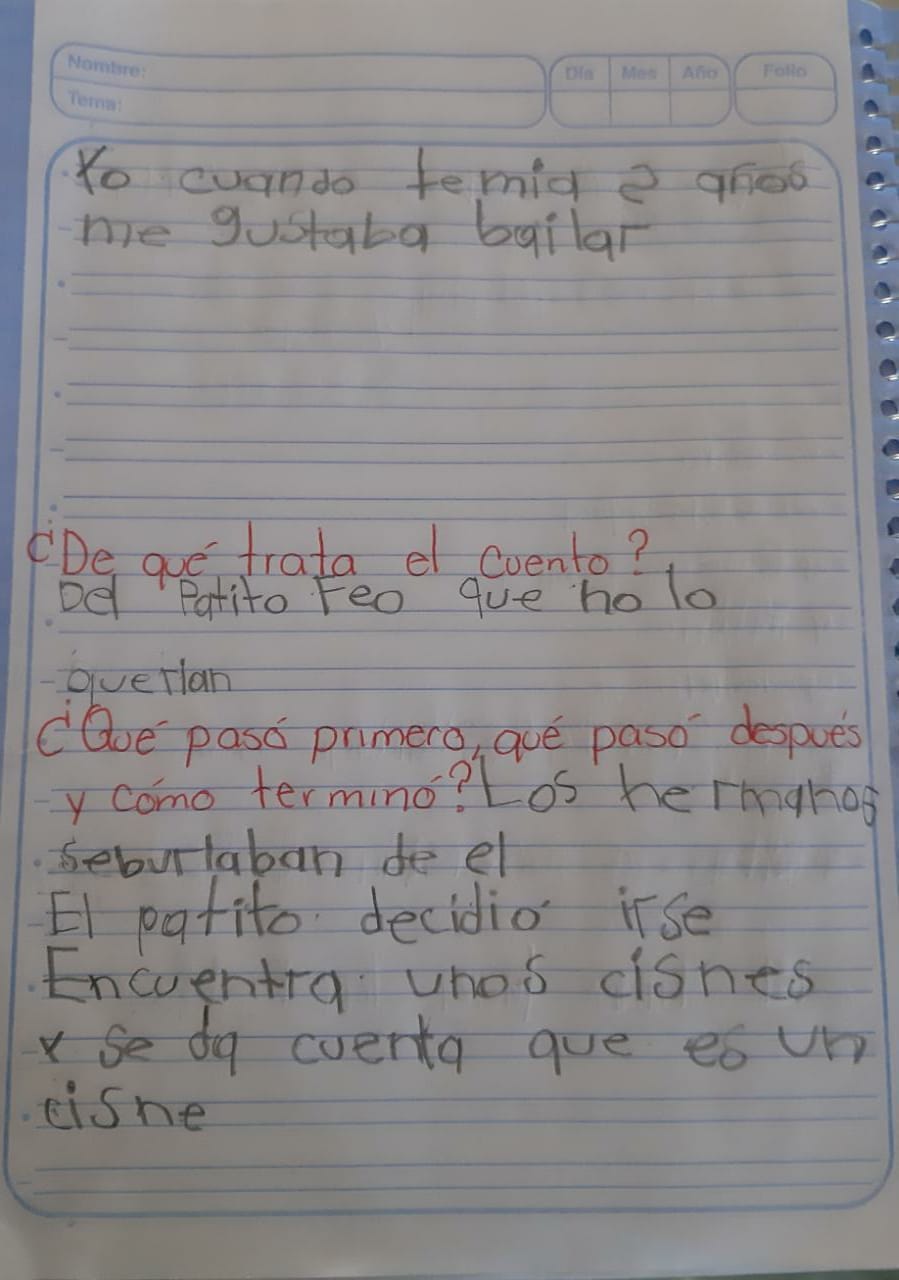 Nombre:
Tema:
Día Mes Año
Folio
Yo cuando temia 2 años
me gustaba bailar
¿De qué trata el cuento?
Del Patito Feo que no lo
querian
¿Qué pasó primero, qué pasó después
y cómo terminó? Los hermanos
seburlaban de el
El patito decidio irse
Encuentra unos cisnes
y se da cuenta que es un
cisne